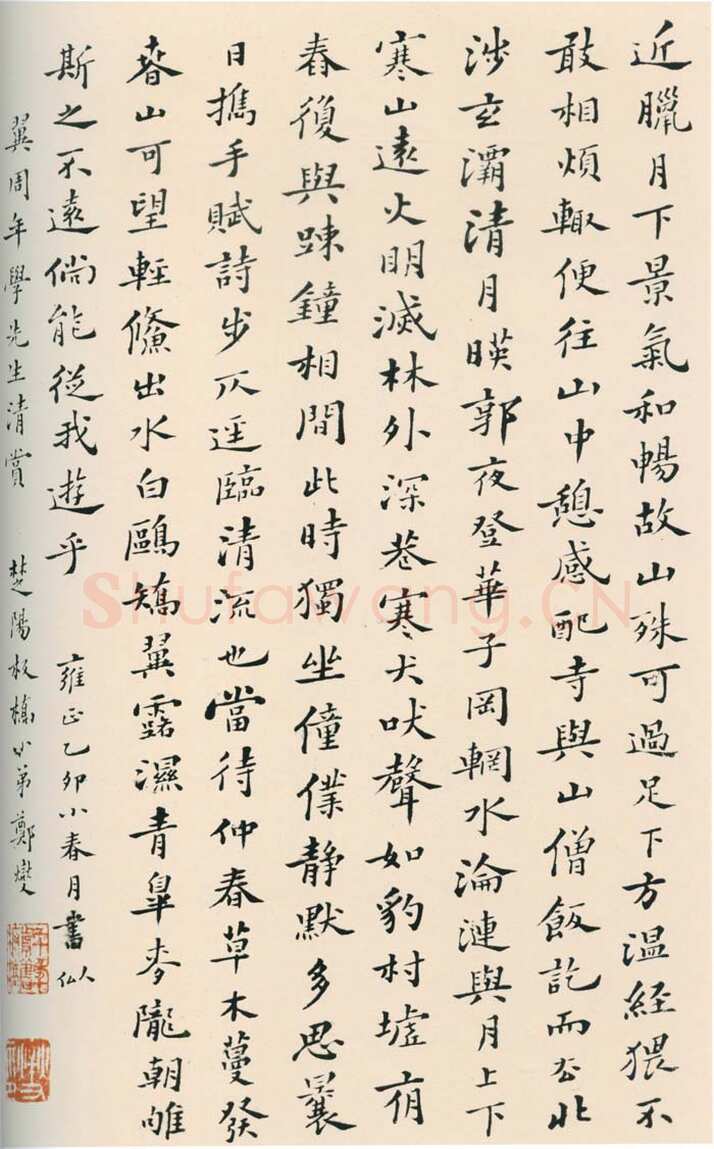 近臘月下景氣和暢故山殊可過足下方温經猥不
敢相煩輙便往山中憩感配寺與山僧飯訖而去北
涉玄灞清月暎郭夜登華子岡輞水淪漣與月上下
寒山遠火明滅林外深巷寒犬吠聲如豹村墟夜
舂復與踈鐘相間此時獨坐僮僕靜默多思曩
日攜手賦詩步仄逕臨清流也當待仲春草木蔓發
春山可望輕鯈出水白鷗矯翼露濕青皐麥隴朝雊
斯之不遠倘能從我遊乎
雍正乙卯小春月書
翼周年學先生清賞 楚陽板橋小弟鄭燮
Shufawang.CN